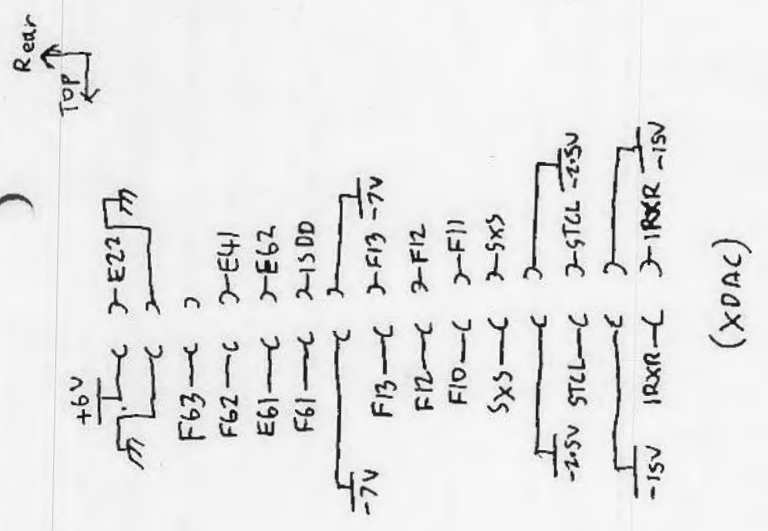 Rear
TOP
+6V
E22
F63
F62 E41
E61 E62
F61 1SDD
-7V -7V
F13 F13
F12 F12
F10 F11
SXS SXS
-2.5V -2.5V
STCL STCL
-15V -15V
1RXR 1RXR
(XDAC)